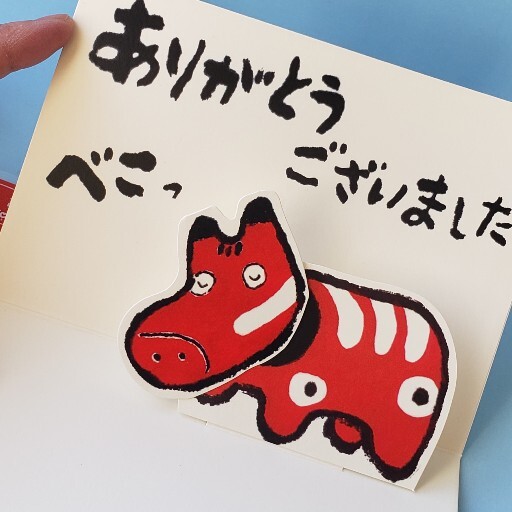 ありがとう
ございました
べこっ